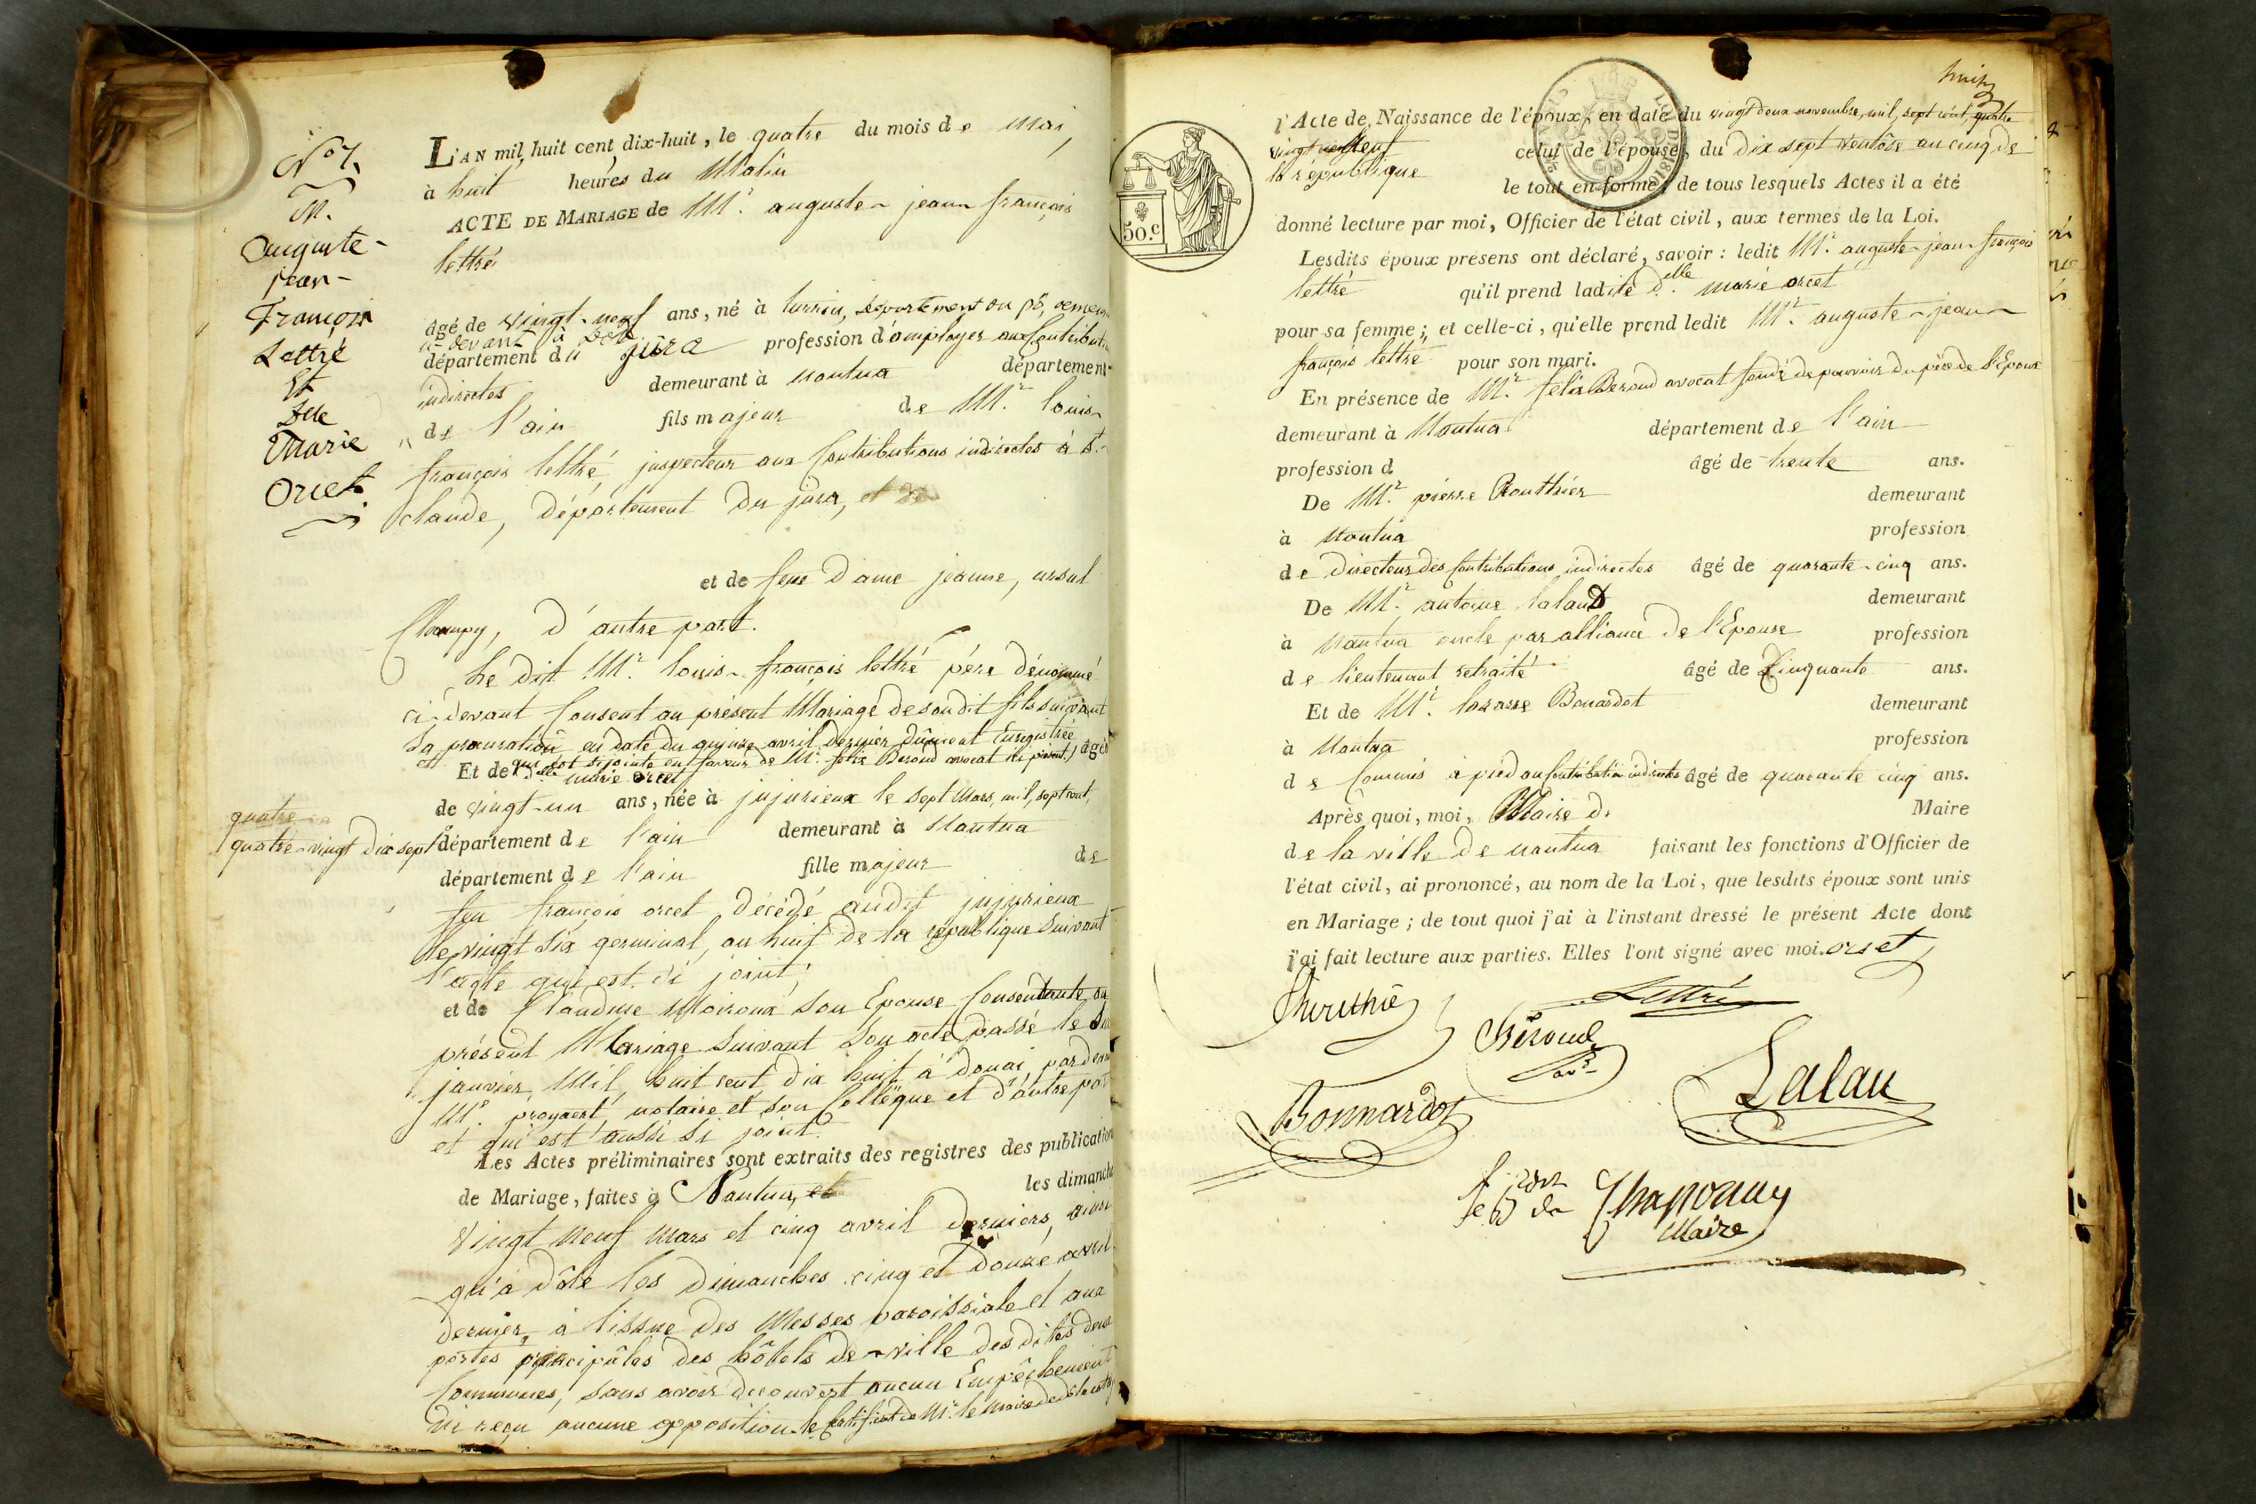 N.o 7.
M.
Auguste-
jean-
François
Lettré
Et
Dlle
Marie
Orcet
L'AN mil huit cent dix-huit, le quatre du mois de Mai,
à huit heures du Matin
ACTE DE MARIAGE de Mr. auguste jean françois
lettré
âgé de vingt-neuf ans, né à turin, département du pô,
ci-devant à
département du jura profession d'employer aux Contributions
indirectes demeurant à Nantua département
de l'ain fils majeur de Mr. louis
françois lettré, inspecteur aux Contributions indirectes à st.
claude, Département du jura,
et de feue Dame jeanne, ursul
Champy, d'autre part.
Le dit Mr. louis-françois lettré père dénommé
ci-devant Consent au présent Mariage de son dit fils suivant
sa procuration en date du quinze avril dernier dûment Enregistrée
qui est si jointe en faveur de Mr. felix Beroud avocat ici présent.
Et de Delle marie orcet âgée
de vingt-un ans, née à jujurieux le sept Mars, mil, sept cent,
quatre
quatre-vingt dix sept
département de l'ain demeurant à Nantua
département de l'ain fille majeur de
feu françois orcet Décédé audit jujurieux
le vingt six germinal, an huit de la republique Suivant
l'acte qui est ci joint;
et de Claudine Moiroux son Epouse Consentante au
présent Mariage Suivant Son acte passé le
janvier, Mil, huit cent, dix huit à Douai, par devant
Me. notaire et son Collègue et d'autre part
et qui est aussi si joint.
Les Actes préliminaires sont extraits des registres des publications
de Mariage, faites à Nantua, les dimanches
Vingt Neuf Mars et cinq avril derniers, ainsi
qu'à Dôle les Dimanches cinq et Douze avril
dernier, à l'issue des Messes paroissiale et aux
portes principâles des hôtels de ville des dites deux
Communes, sans avoir découvert aucun Empêchement
ni reçu aucune opposition. le Certificat de Mr. le Maire de Dôle
huit
l'Acte de Naissance de l'époux, en date du vingt deux novembre, mil, sept cent, quatre
vingt neuf celui de l'épouse, du Dix sept Ventôse an cinq de
la république le tout en forme; de tous lesquels Actes il a été
donné lecture par moi, Officier de l'état civil, aux termes de la Loi.
50.c
Lesdits époux présens ont déclaré, savoir: ledit Mr. auguste-jean-françois
lettré qu'il prend ladite Delle. marie orcet
pour sa femme; et celle-ci, qu'elle prend ledit Mr. auguste-jean-
françois lettré pour son mari.
En présence de Mr. felix Beroud avocat fondé de pouvoir du père de l'Epoux
demeurant à Nantua département de l'ain
profession d âgé de trente ans.
De Mr. pierre Routhier demeurant
à Nantua profession
de Directeur des Contributions indirectes âgé de quarante-cinq ans.
De Mr. antoine lalau demeurant
à Nantua oncle par alliance de l'Epouse profession
de lieutenant retraité âgé de Cinquante ans.
Et de Mr. Bonardot demeurant
à Nantua profession
de Commis à pied au Contribution indirectes âgé de quarante cinq ans.
Après quoi, moi, Maire d Maire
de la ville de nantua faisant les fonctions d'Officier de
l'état civil, ai prononcé, au nom de la Loi, que lesdits époux sont unis
en Mariage; de tout quoi j'ai à l'instant dressé le présent Acte dont
j'ai fait lecture aux parties. Elles l'ont signé avec moi. orcet
Lettré
Béroud
Lalau
Bonnardot
Maire